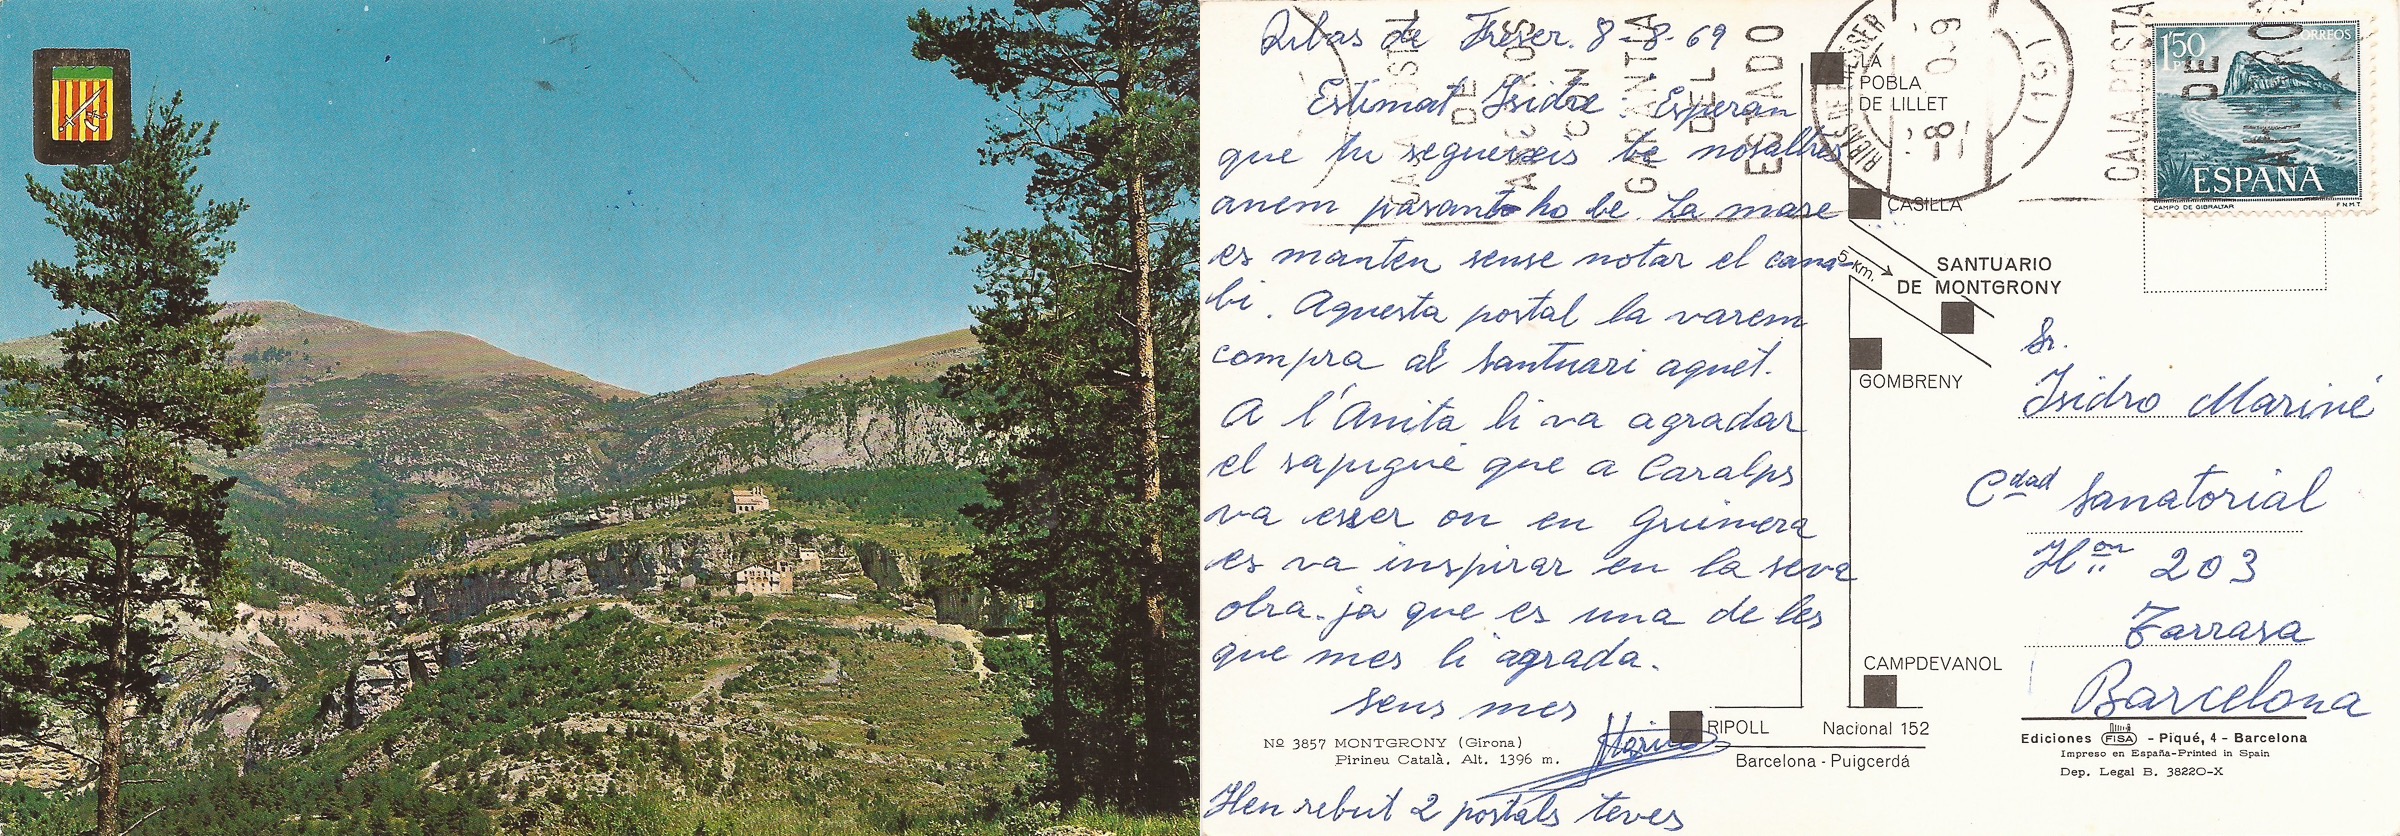 Ribas de Freser. 8-8-69
Estimat Isidre: Esperan
que tu segueixis be nosaltres
anem pasant ho be. La mare
es manten sense notar el cana-
bi. Aquesta postal la varem
compra al Santuari aquet.
A l'Anita li va agradar
el sapigué que a Caralps
va esser on en Guimera
es va inspirar en la seva
obra. ja que es una de les
que mes li agrada.
sens mes
Nº 3857 MONTGRONY (Girona)
Pirineu Català. Alt. 1396 m.
Hen rebut 2 postals teves
LA
POBLA
DE LILLET
CASILLA
5 km.
SANTUARIO
DE MONTGRONY
GOMBRENY
CAMPDEVANOL
RIPOLL
Nacional 152
Barcelona - Puigcerdá
CAJA POSTAL
DE
AHORROS
CON
GARANTIA
DEL
ESTADO
RIBAS DE FRESER
CAJA POSTA
DE
AHORROS
1'50
PTS
CORREOS
ESPAÑA
CAMPO DE GIBRALTAR
F.N.M.T.
Sr.
Isidro Mariné
Cdad Sanatorial
Hon 203
Tarrasa
Barcelona
Ediciones FISA - Piqué, 4 - Barcelona
Impreso en España-Printed in Spain
Dep. Legal B. 38220-X